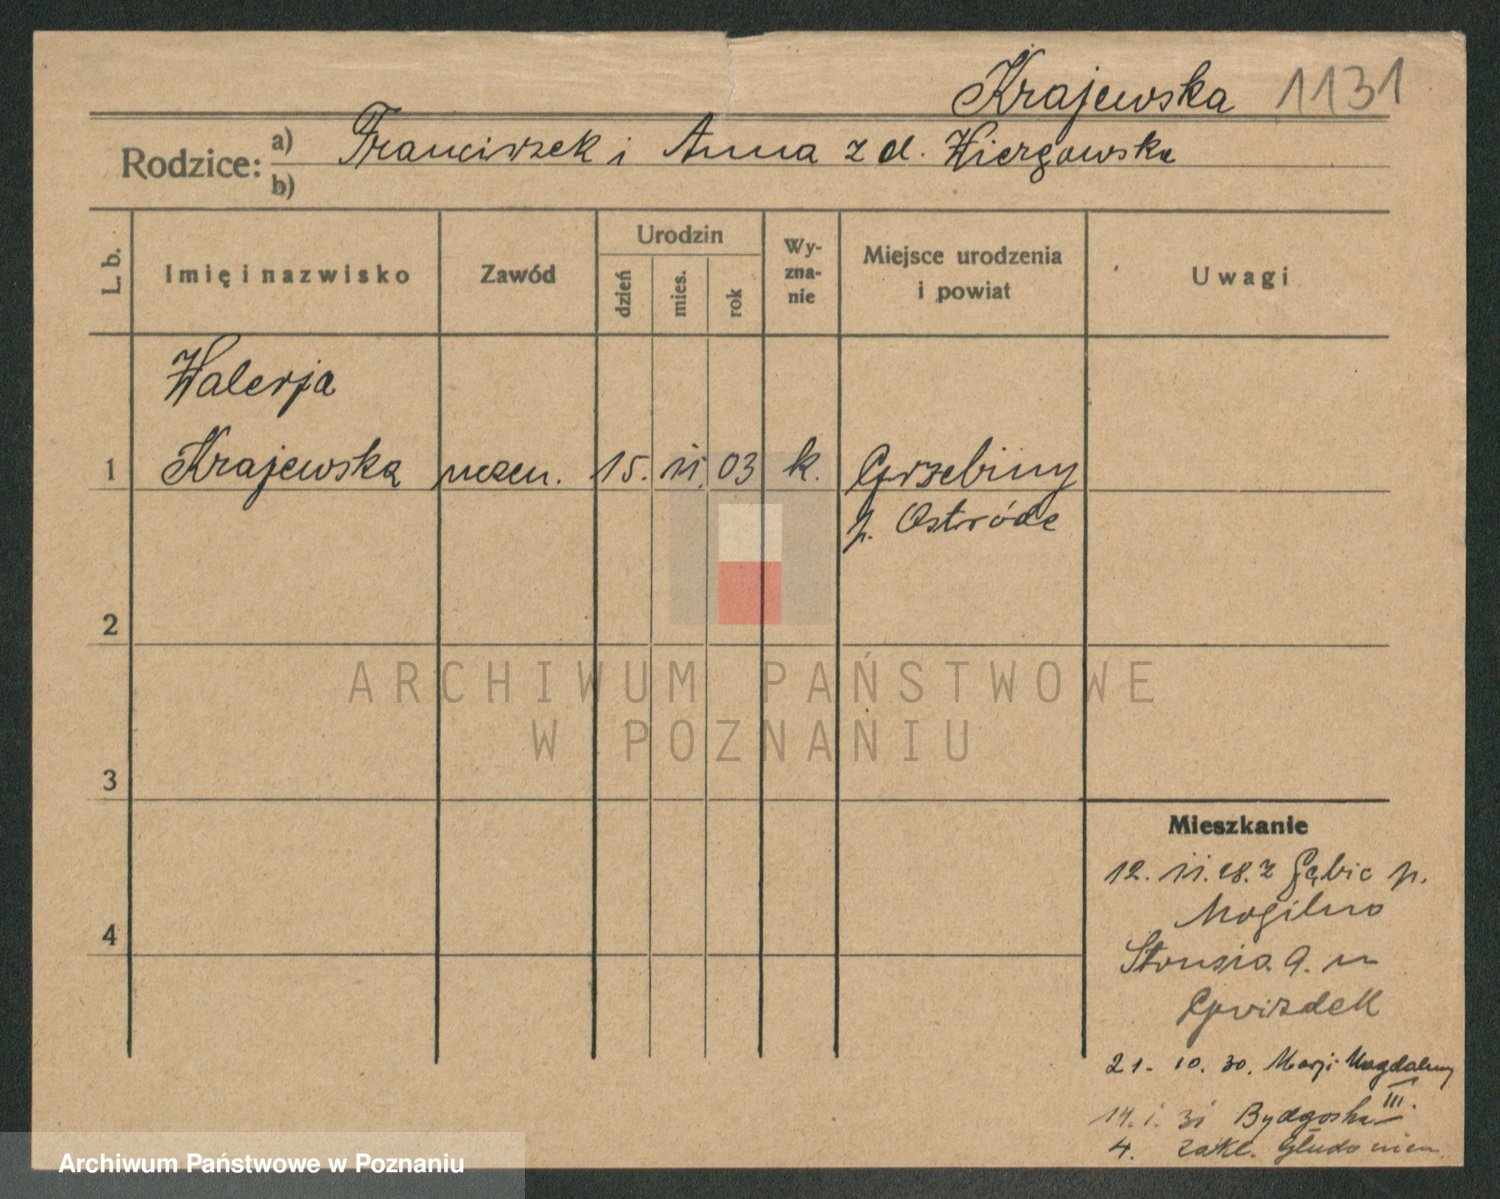 Krajewska 1131
Rodzice: a) Franciszek i Anna z d. Wiergowska
b)
L. b. Imię i nazwisko Zawód Urodzin dzień mies. rok Wy-zna-nie Miejsce urodzenia i powiat Uwagi
Walerja
1 Krajewska uczen. 15. 11. 03 k. Grzebiny
p. Ostróde
2
3
4
Mieszkanie
12. 11. 28. z Gębic p.
Mogilno
Strusia 9. m
Gwizdek
21. 10. 30. Marji Magdaleny
14. 1. 31 Bydgoska III.
4. zakł.
ARCHIWUM PAŃSTWOWE
W POZNANIU
Archiwum Państwowe w Poznaniu